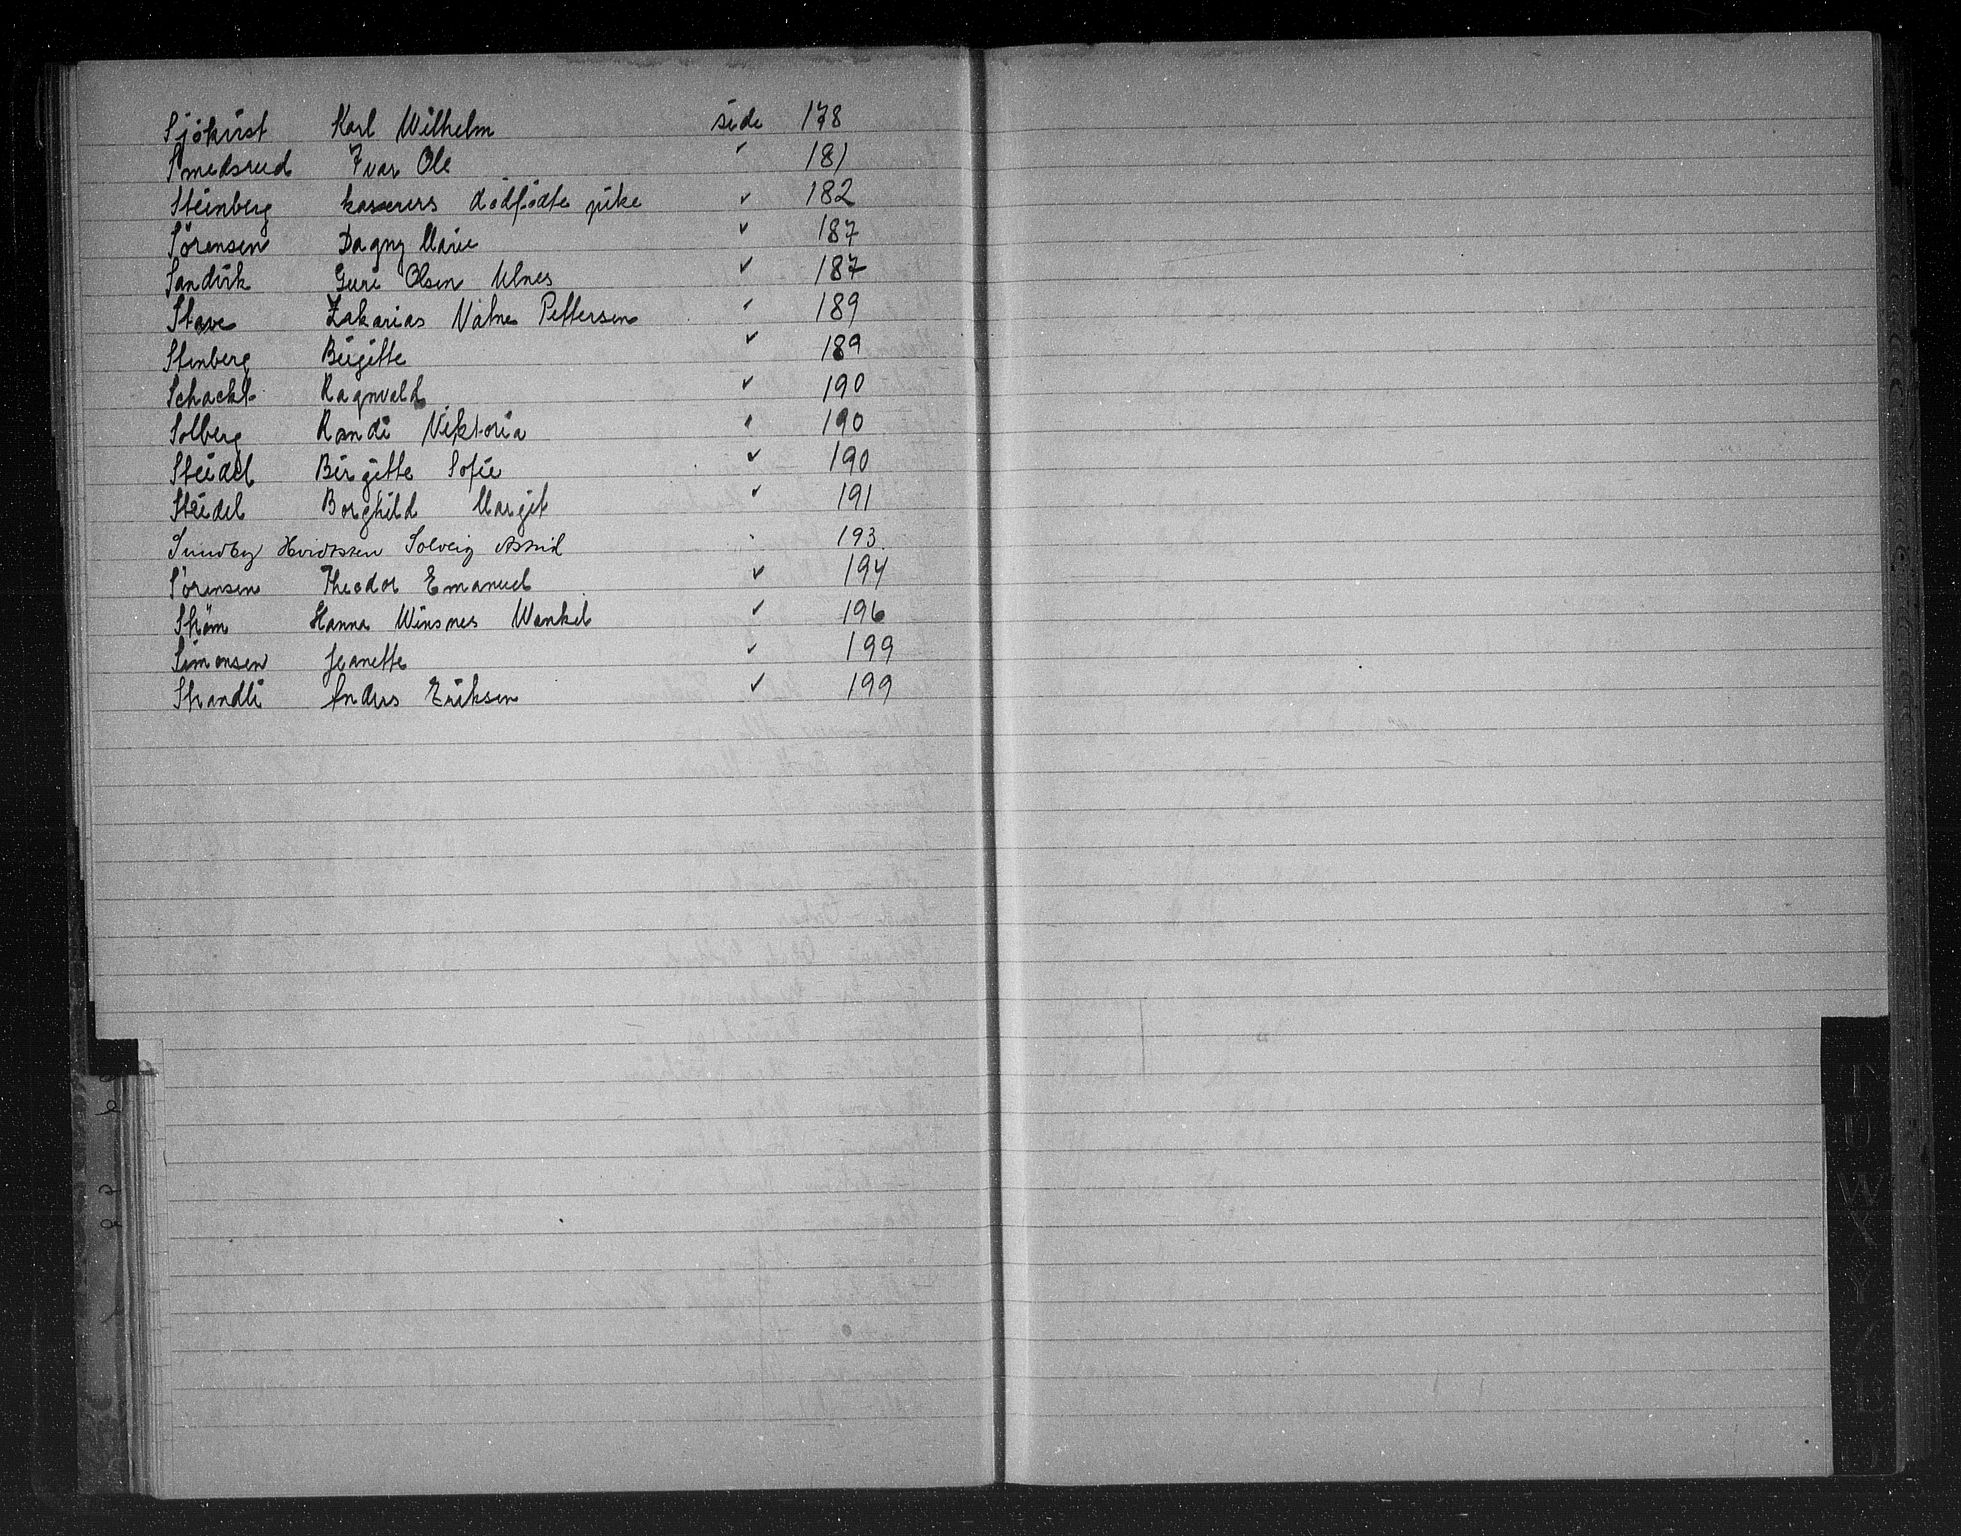 Sjökvist Karl Wilhelm side 178
Smedsrud Ivar Ole " 181
Steinberg kaserers dødfødte pike " 182
Sörensen Dagny Marie " 187
Sandvik Guri Olsen Ulnes " 187
Stave Zakarias Vatne Pettersen " 189
Stenberg Birgitte " 189
Schackt Ragnvald " 190
Solberg Randi Viktoria " 190
Steidel Birgitte Sofie " 190
Steidel Borghild Margit " 191
Sundby Hvidtsten Solveig Astrid " 193
Sörensen Theodor Emanuel " 194
Ström Hanna Winsnes Wankel " 196
Simonsen Jeanette " 199
Strandli Anders Eriksen " 199
T
U
W
X
Y